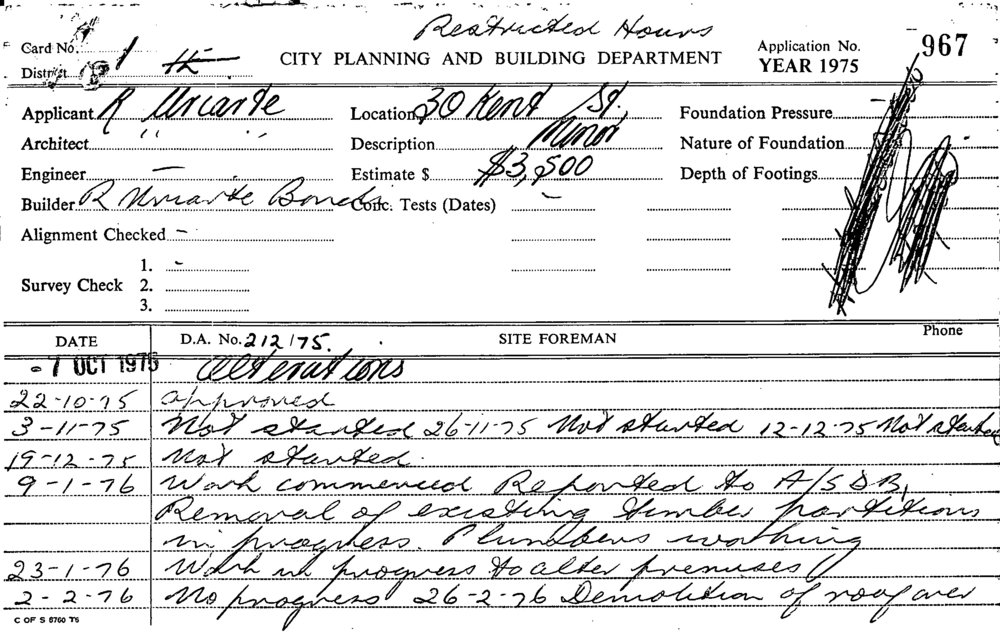 Restricted Hours
Card No. 1
District
CITY PLANNING AND BUILDING DEPARTMENT
Application No. 967
YEAR 1975
Applicant R Uriarte
Location 30 Kent St.
Foundation Pressure
Architect " "
Description Minor
Nature of Foundation -
Engineer -
Estimate $ $3,500
Depth of Footings
Builder R Uriarte
Conc. Tests (Dates) -
Alignment Checked -
Survey Check
1. -
2.
3.
DATE
D.A. No. 212/75.
SITE FOREMAN
Phone
-7 OCT 1975 Alterations
22-10-75 approved
3-11-75 Not started 26-11-75 Not started 12-12-75 Not started
19-12-75 Not started.
9-1-76 Work commenced Reported to A/SDR,
Removal of existing timber partitions
in progress. Plumbers working
23-1-76 Work in progress to alter premises
2-2-76 No progress 26-2-76 Demolition of roof over
C OF S 8760 T6